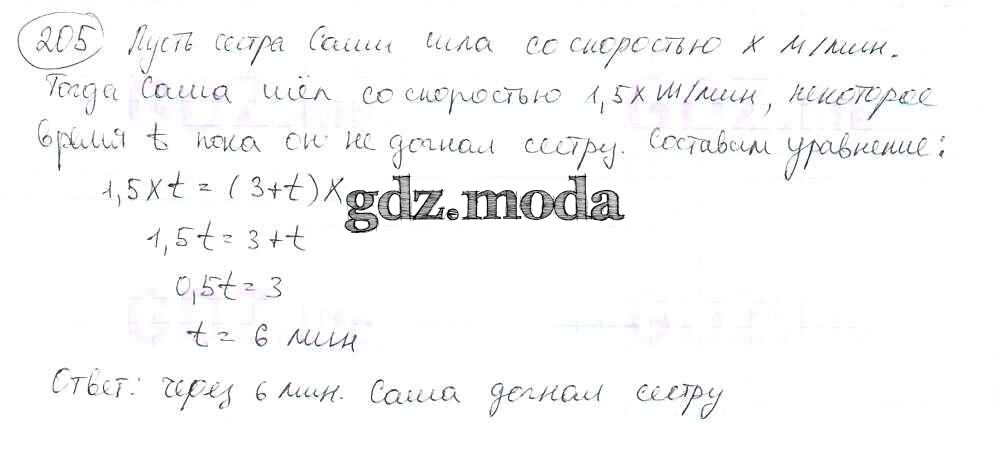 205 Пусть сестра Саши шла со скоростью x м/мин.
Тогда Саша шёл со скоростью 1,5x м/мин, некоторое
время t пока он не догнал сестру. Составим уравнение:
1,5xt = (3+t)x
gdz.moda
1,5t = 3+t
0,5t = 3
t = 6 мин
Ответ: через 6 мин. Саша догнал сестру